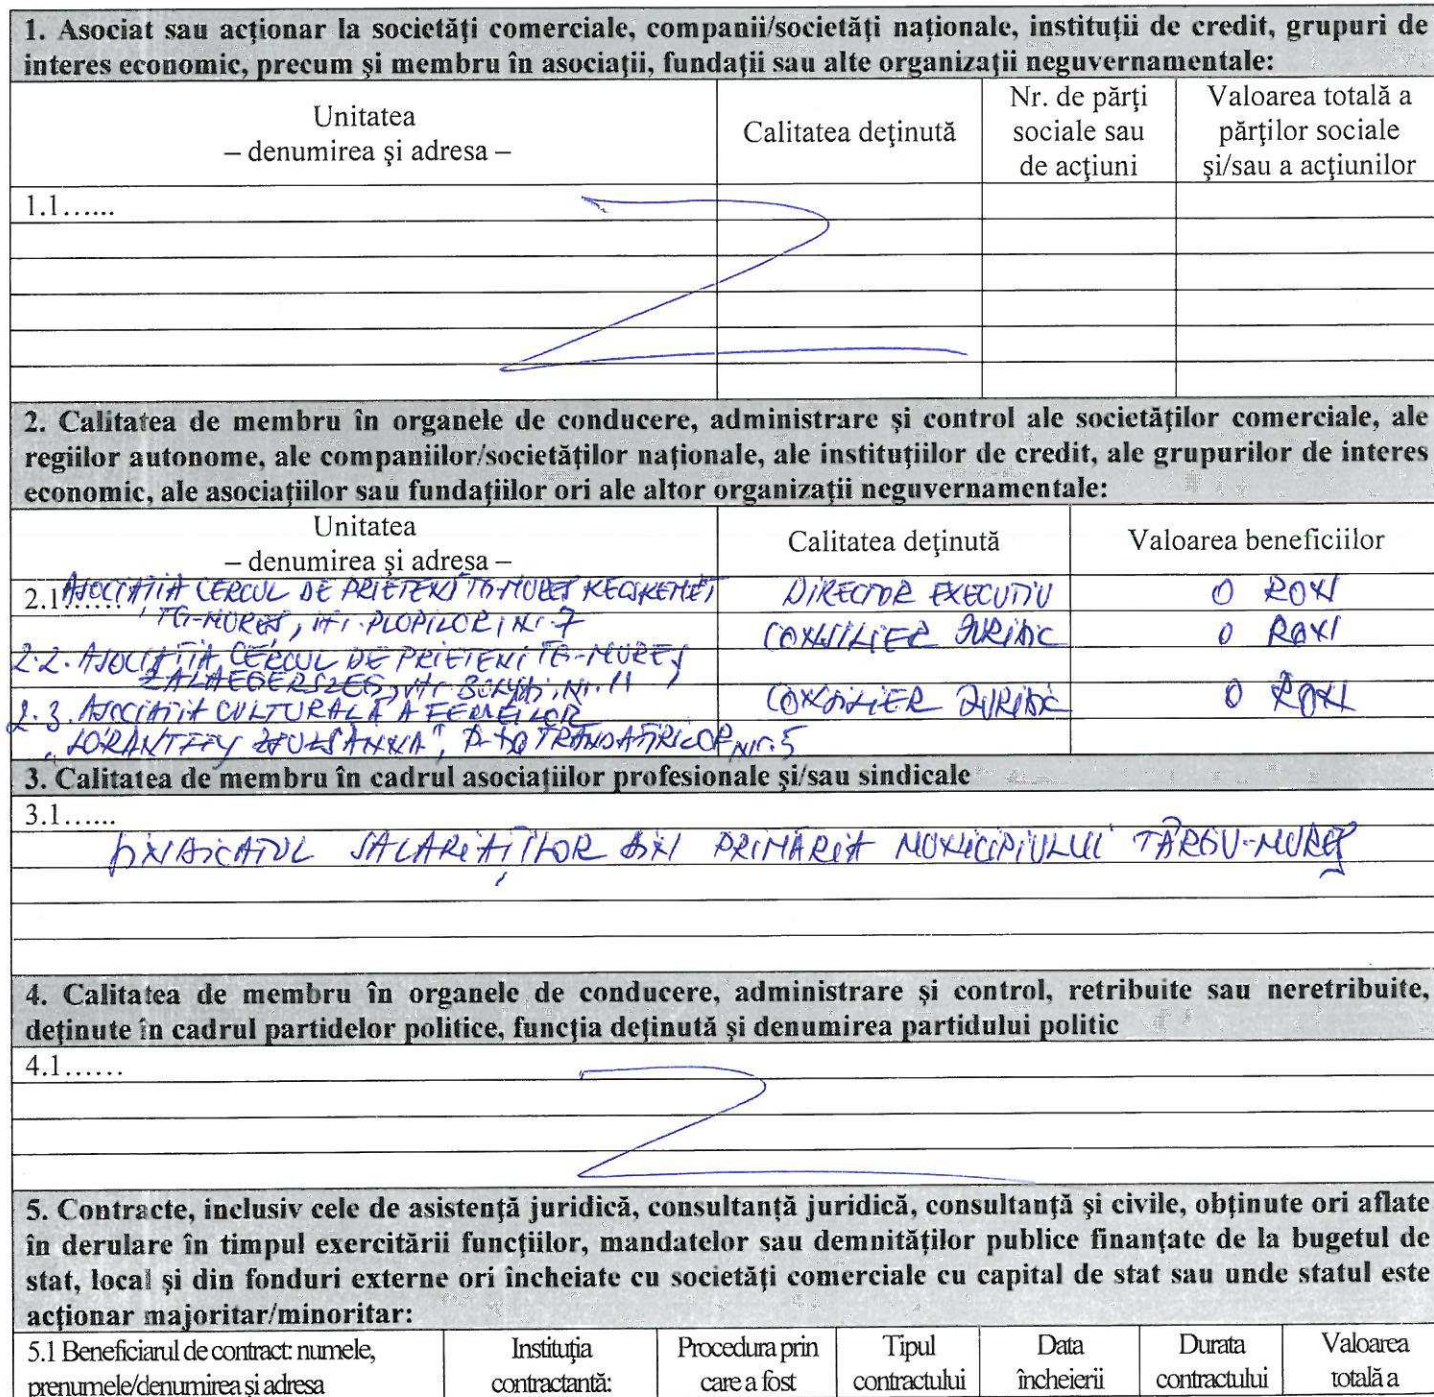 1. Asociat sau acţionar la societăţi comerciale, companii/societăţi naţionale, instituţii de credit, grupuri de
interes economic, precum şi membru în asociaţii, fundaţii sau alte organizaţii neguvernamentale:
Unitatea
– denumirea şi adresa –
Calitatea deţinută
Nr. de părţi
sociale sau
de acţiuni
Valoarea totală a
părţilor sociale
şi/sau a acţiunilor
1.1......
2. Calitatea de membru în organele de conducere, administrare şi control ale societăţilor comerciale, ale
regiilor autonome, ale companiilor/societăţilor naţionale, ale instituţiilor de credit, ale grupurilor de interes
economic, ale asociaţiilor sau fundaţiilor ori ale altor organizaţii neguvernamentale:
Unitatea
– denumirea şi adresa –
Calitatea deţinută
Valoarea beneficiilor
2.1...... ASOCIAŢIA CERCUL DE PRIETENI TG-MUREŞ KECSKEMÉT
DIRECTOR EXECUTIV
0 RON
TG-MUREŞ, str. PLOPILOR, Nr. 7
CONSILIER JURIDIC
0 RON
2.2. ASOCIAŢIA CERCUL DE PRIETENI TG-MUREŞ
ZALAEGERSZEG, str. Nr. 11
2.3. ASOCIAŢIA CULTURALĂ A FEMEILOR
CONSILIER JURIDIC
0 RON
"LORANTFFY ZSUZSANNA", P-ţa TRANDAFIRILOR Nr. 5
3. Calitatea de membru în cadrul asociaţiilor profesionale şi/sau sindicale
3.1......
SINDICATUL SALARIAŢILOR DIN PRIMĂRIA MUNICIPIULUI TÂRGU-MUREŞ
4. Calitatea de membru în organele de conducere, administrare şi control, retribuite sau neretribuite,
deţinute în cadrul partidelor politice, funcţia deţinută şi denumirea partidului politic
4.1......
5. Contracte, inclusiv cele de asistenţă juridică, consultanţă juridică, consultanţă şi civile, obţinute ori aflate
în derulare în timpul exercitării funcţiilor, mandatelor sau demnităţilor publice finanţate de la bugetul de
stat, local şi din fonduri externe ori încheiate cu societăţi comerciale cu capital de stat sau unde statul este
acţionar majoritar/minoritar:
5.1 Beneficiarul de contract: numele,
prenumele/denumirea şi adresa
Instituţia
contractantă:
Procedura prin
care a fost
Tipul
contractului
Data
încheierii
Durata
contractului
Valoarea
totală a